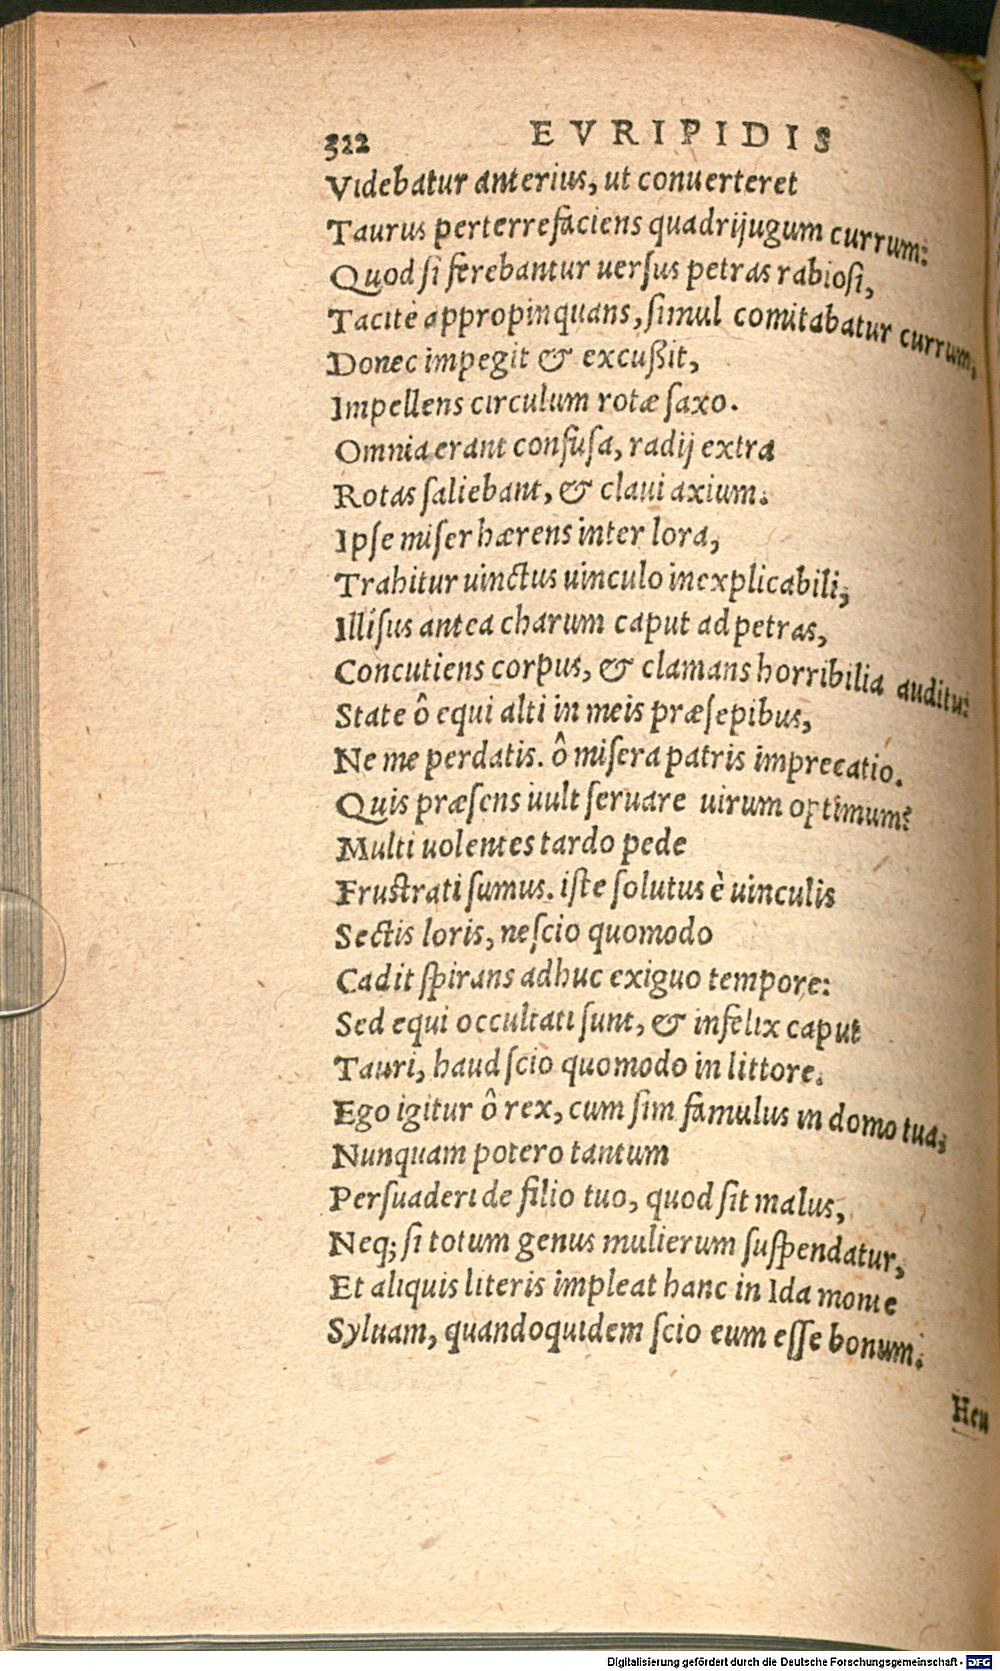 322 EVRIPIDIS
Videbatur anterius, ut conuerteret
Taurus perterrefaciens quadrijugum currum:
Quod si ferebantur uersus petras rabiosi,
Tacitè appropinquans, simul comitabatur currum,
Donec impegit & excußit,
Impellens circulum rotæ saxo.
Omnia erant confusa, radij extra
Rotas saliebant, & claui axium.
Ipse miser hærens inter lora,
Trahitur uinctus uinculo inexplicabili,
Illisus antea charum caput ad petras,
Concutiens corpus, & clamans horribilia auditu:
State ô equi alti in meis præsepibus,
Ne me perdatis. ô misera patris imprecatio.
Quis præsens uult seruare uirum optimum?
Multi uolentes tardo pede
Frustrati sumus. iste solutus è uinculis
Sectis loris, nescio quomodo
Cadit spirans adhuc exiguo tempore:
Sed equi occultati sunt, & infelix caput
Tauri, haud scio quomodo in littore.
Ego igitur ô rex, cum sim famulus in domo tua,
Nunquam potero tantum
Persuaderi de filio tuo, quod sit malus,
Neq; si totum genus mulierum suspendatur,
Et aliquis literis impleat hanc in Ida monte
Syluam, quandoquidem scio eum esse bonum.
Heu
Digitalisierung gefördert durch die Deutsche Forschungsgemeinschaft - DFG